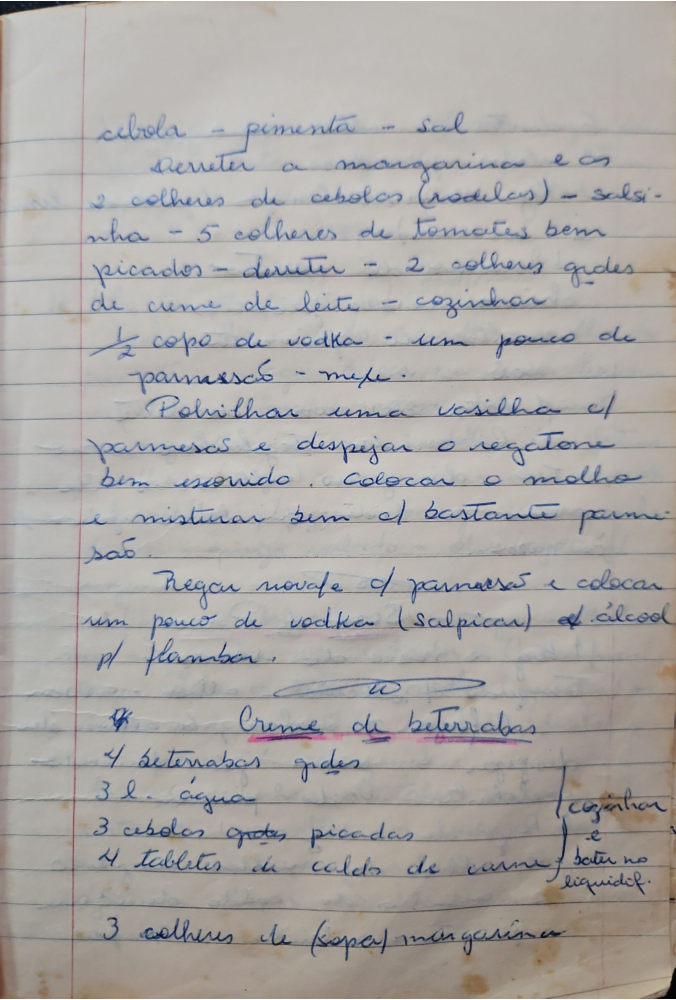 cebola - pimenta - sal
Derreter a margarina e as
2 colheres de cebolas (rodelas) - salsi-
nha - 5 colheres de tomates bem
picados - derreter - 2 colheres gdes
de creme de leite - cozinhar
1/2 copo de vodka - um pouco de
parmessão - mexe.
Polvilhar uma vasilha c/
parmesão e despejar o regatone
bem escorrido. Colocar o molho
e misturar bem c/ bastante parme-
são.
Regar nova/e c/ parmesão e colocar
um pouco de vodka (salpicar) álcool
p/ flambar.
Creme de beterrabas
4 beterrabas gdes
3 l. água
3 cebolas gdes picadas
4 tabletes de caldo de carne
cozinhar
e
bater no
liquidif.
3 colheres de (sopa) margarina